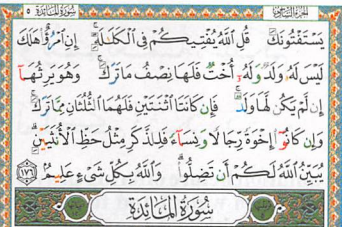 الجزء السادس سورة المائدة ٥
يَسْتَفْتُونَكَ قُلِ ٱللَّهُ يُفْتِيكُمْ فِى ٱلْكَلَٰلَةِ ۚ إِنِ ٱمْرُؤٌا۟ هَلَكَ
لَيْسَ لَهُۥ وَلَدٌ وَلَهُۥٓ أُخْتٌ فَلَهَا نِصْفُ مَا تَرَكَ ۚ وَهُوَ يَرِثُهَآ
إِن لَّمْ يَكُن لَّهَا وَلَدٌ ۚ فَإِن كَانَتَا ٱثْنَتَيْنِ فَلَهُمَا ٱلثُّلُثَانِ مِمَّا تَرَكَ ۚ
وَإِن كَانُوٓا۟ إِخْوَةً رِّجَالًا وَنِسَآءً فَلِلذَّكَرِ مِثْلُ حَظِّ ٱلْأُنثَيَيْنِ ۗ
يُبَيِّنُ ٱللَّهُ لَكُمْ أَن تَضِلُّوا۟ ۗ وَٱللَّهُ بِكُلِّ شَىْءٍ عَلِيمٌۢ ١٧٦
سُورَةُ المَائِدَةِ